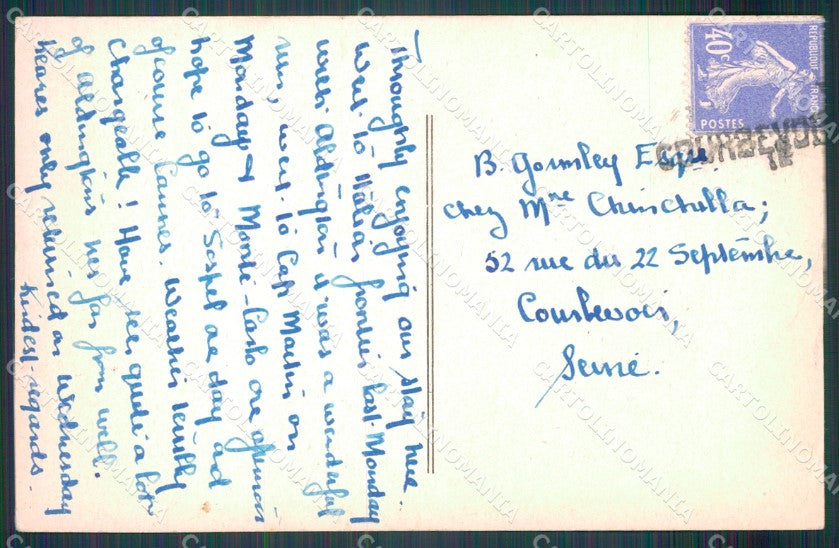 Throughly enjoying our stay here.
Went to Italian frontier last Monday
with Aldington it was a wonderful
run, went to Cap Martin on
Monday & Monte-Carlo one afternoon
hope to go to Sospel one day and
of course Cannes. Weather terribly
changeable! Have seen quite a lot
of Aldingtons he's far from well.
only returned on Wednesday
Kindest-regards.
40c
REPUBLIQUE FRANCAISE
POSTES
COURBEVOIE
B. Gormley Esqre.
chez Mme Chinchilla;
52 rue du 22 Septembre,
Courbevoie,
Seine.
CARTOLINOMANIA